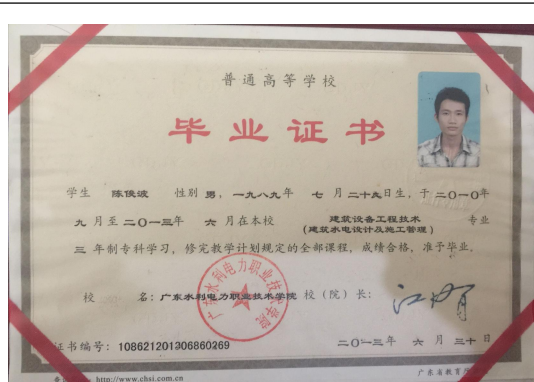 普通高等学校
毕业证书
学生 陈俊波 性别 男，一九八九年 七 月二十九日生，于二〇一〇年
九 月至二〇一三年 六 月在本校 建筑设备工程技术 专业
(建筑水电设计及施工管理)
三 年制专科学习，修完教学计划规定的全部课程，成绩合格，准予毕业。
校 名：广东水利电力职业技术学院 校（院）长：
广东水利电力职业技术学院
证书编号：108621201306860269
二〇一三年 六 月 三十日
http://www.chsi.com.cn
广东省教育